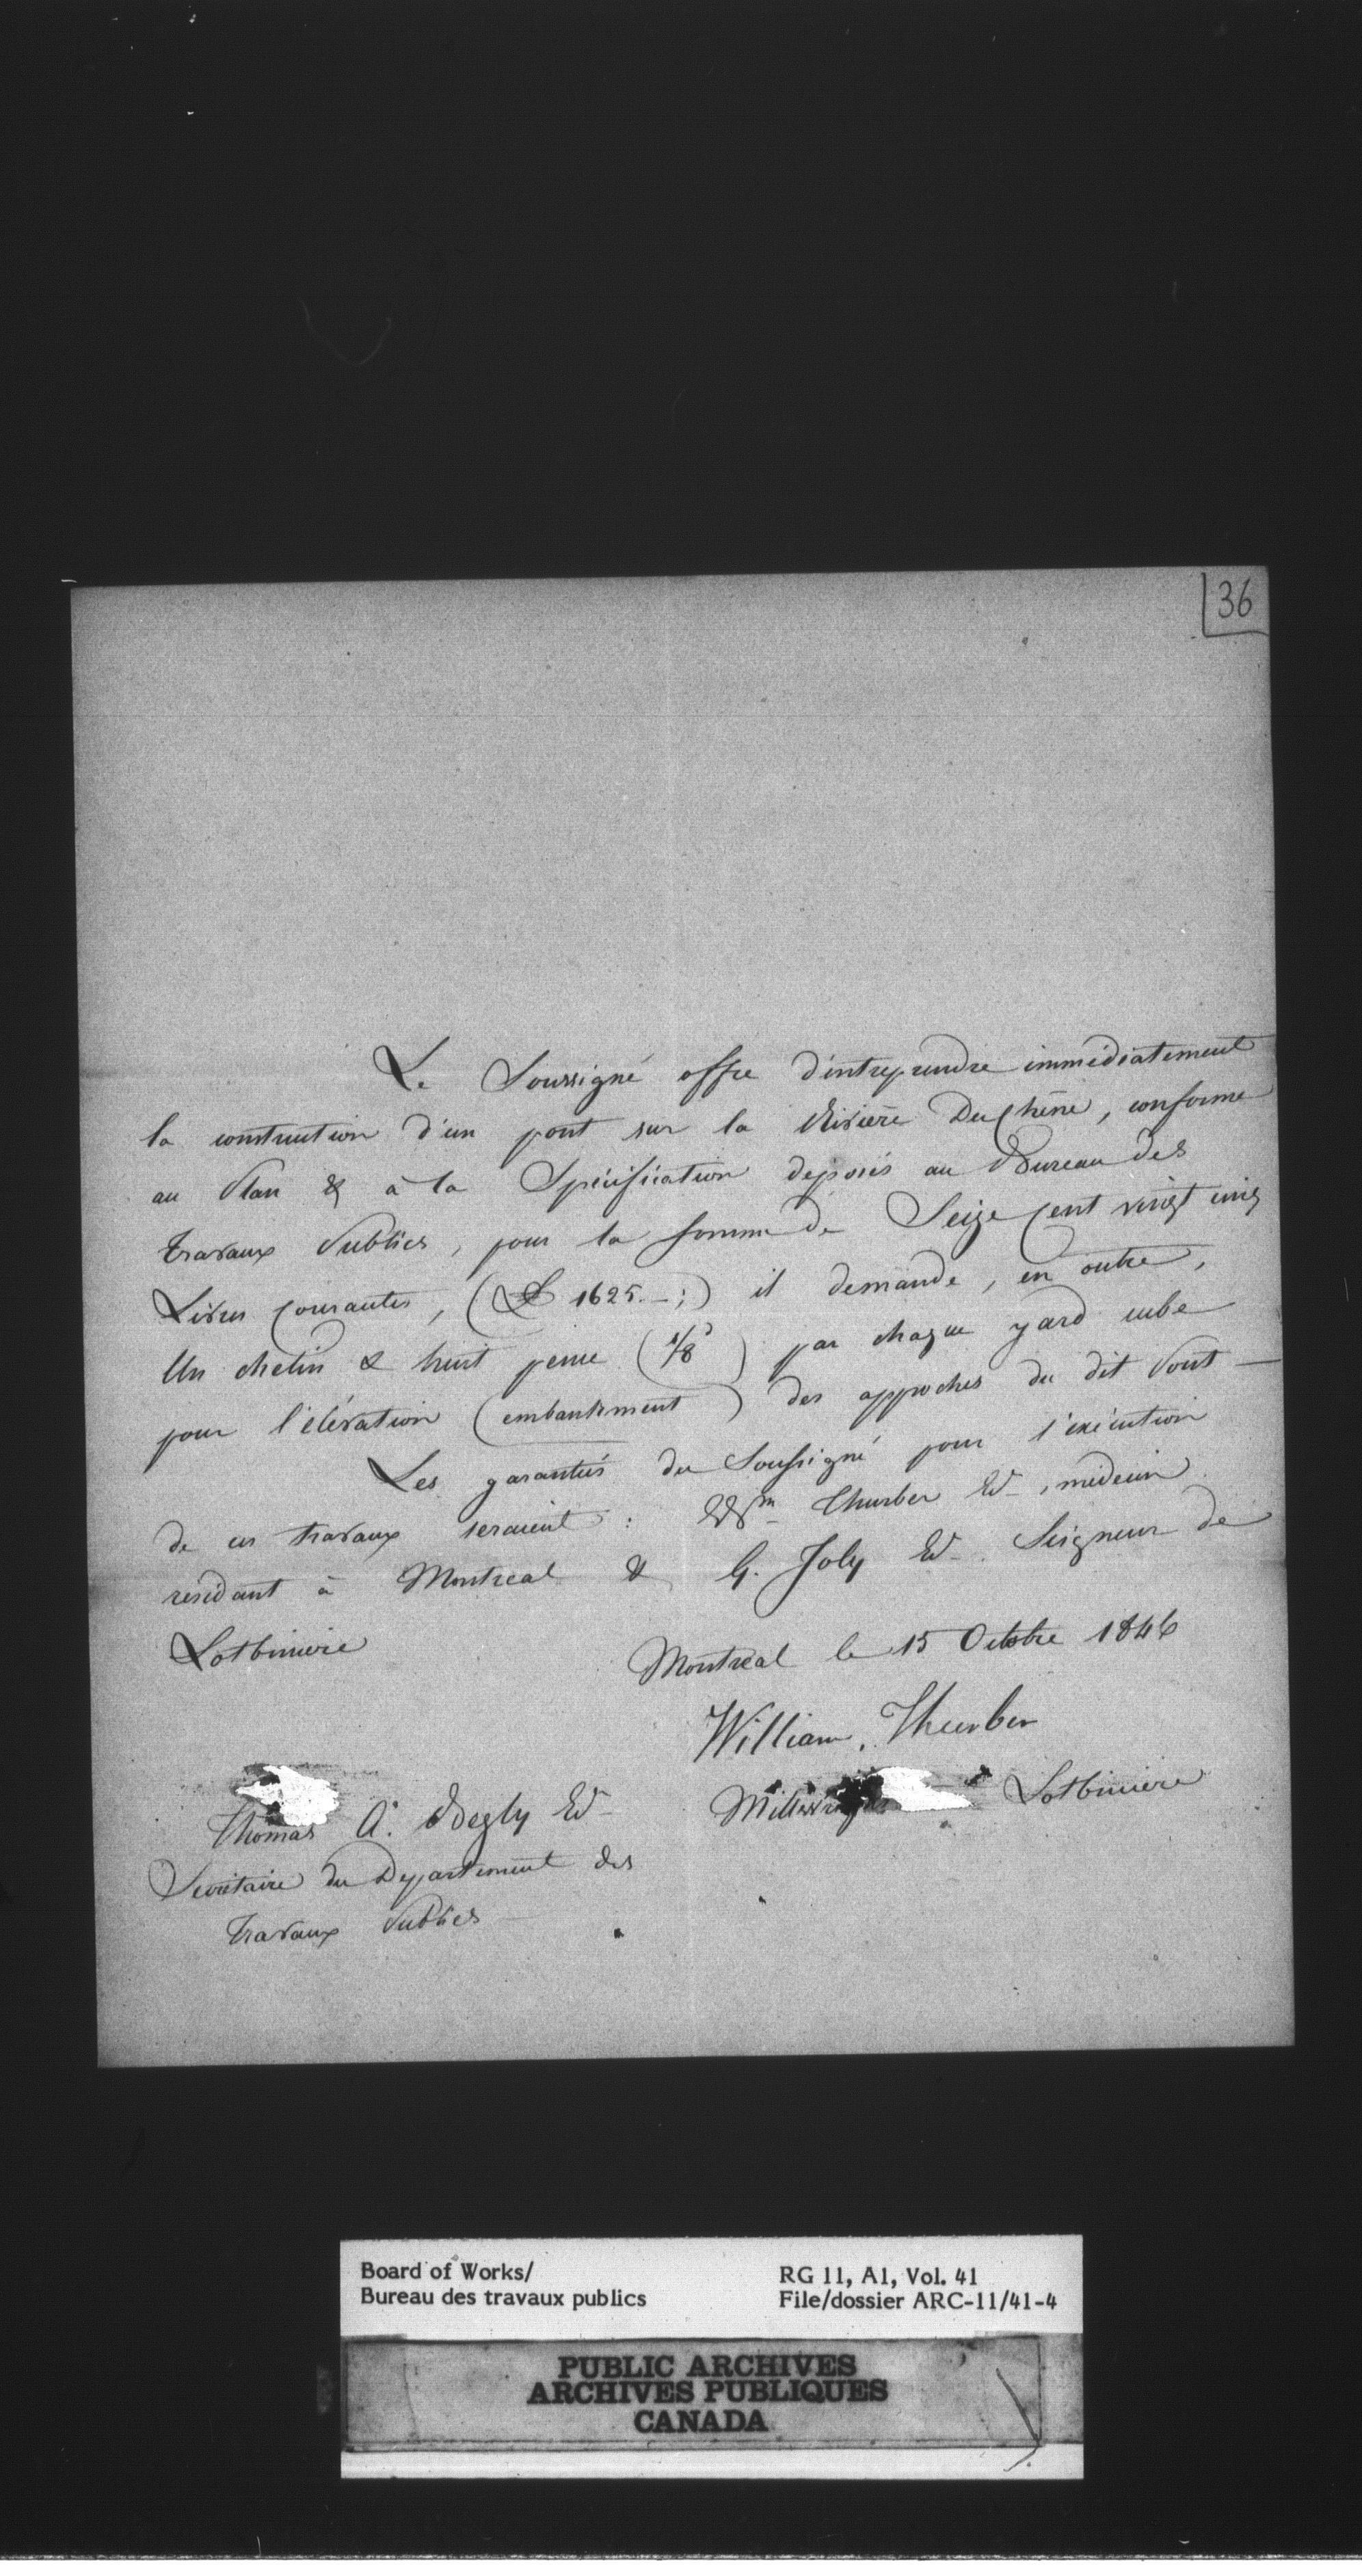 36
Le Soussigné offre d'entreprendre immédiatement
la construction d'un pont sur la Rivière DuChêne, conforme
au Plan & à la Spécification déposés au Bureau des
Travaux Publics, pour la somme de Seize Cent vingt cinq
Livres Courantes, (£ 1625.–;) il demande, en outre,
Un chelin & huit pence (1/8ᵈ) par chaque yard cube
pour l'élévation (embankment) des approches du dit Pont —
Les garanties du Soussigné pour l'exécution
de ces travaux seraient : Wm Thurber Ed, médecin
residant à Montreal & G. Joly Ed. Seigneur de
Lotbiniere
Montreal le 15 Octobre 1846
William Thurber
Lotbiniere
Thomas A. Begly Ed
Secrétaire du Departement des
Travaux Publics —
Board of Works/
Bureau des travaux publics
RG 11, A1, Vol. 41
File/dossier ARC-11/41-4
PUBLIC ARCHIVES
ARCHIVES PUBLIQUES
CANADA